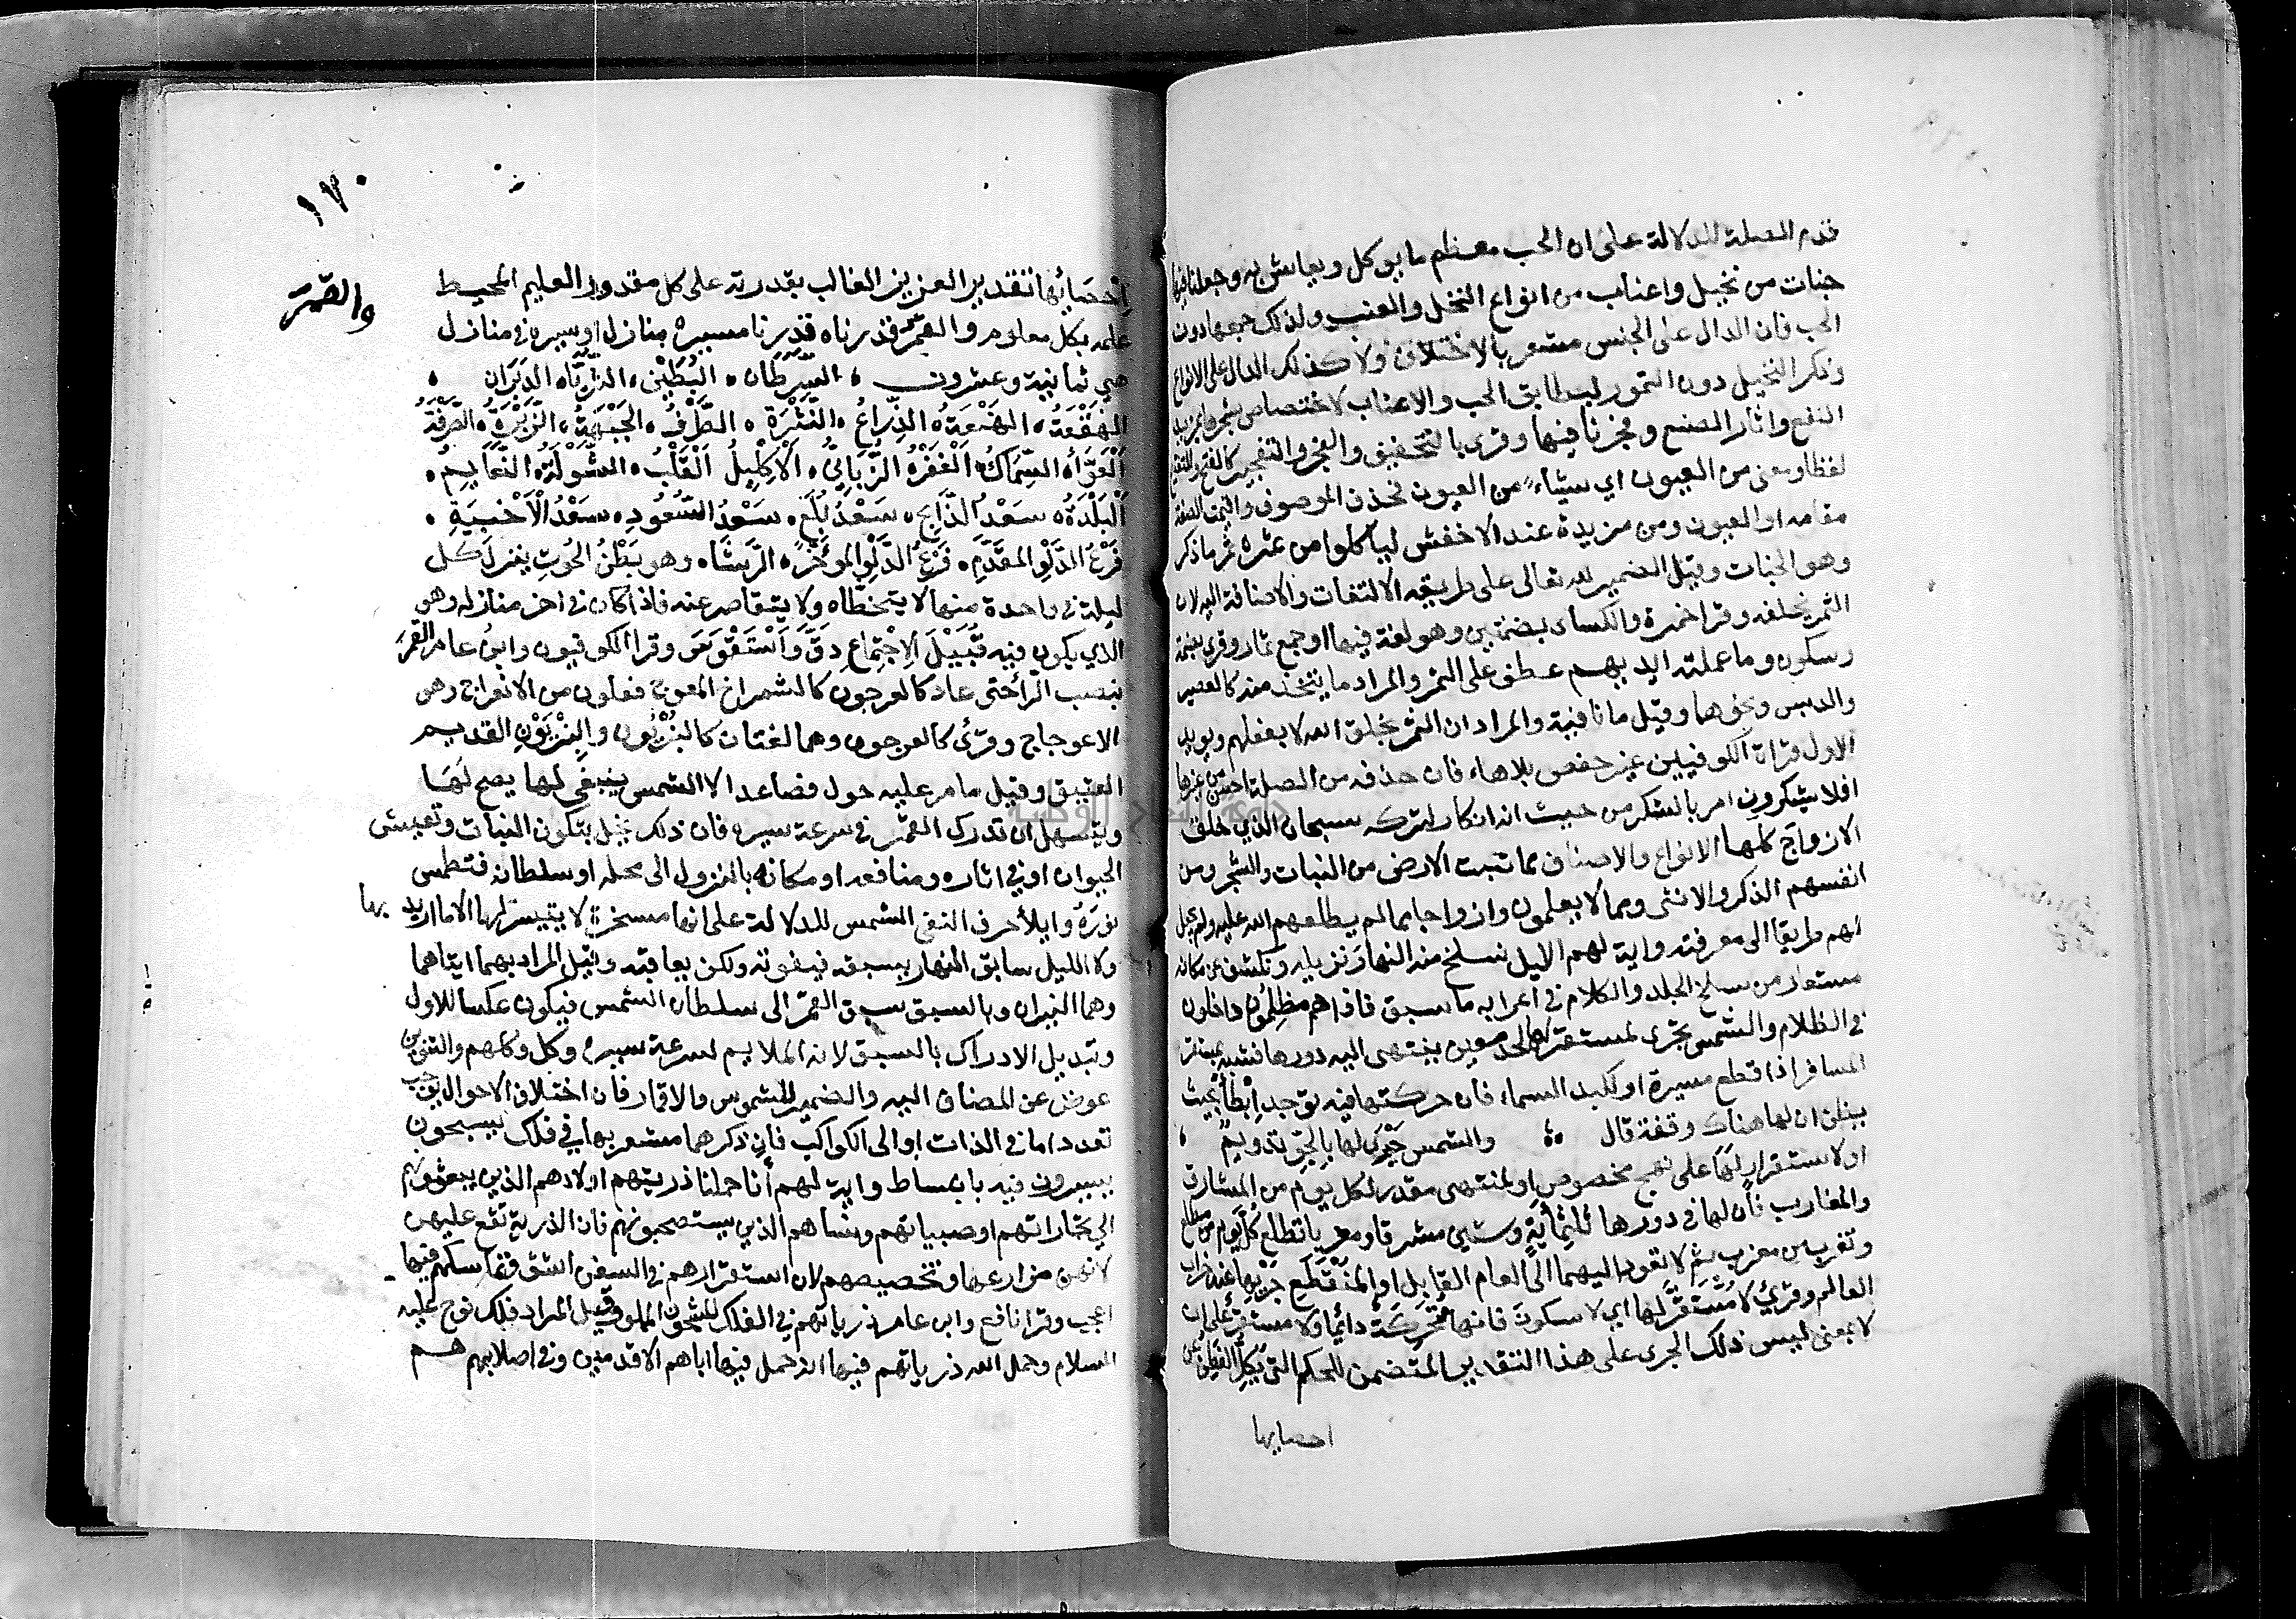 قدم الصلة للدلالة على ان الحب معظم ما يوكل ويعاش به وجعلنا فيها
جنات من نخيل واعناب من انواع النخل والعنب ولذلك جمعهما دون
الحب فان الدال على الجنس مشعر بالاختلاف ولا كذلك الدال على الانواع
وذكر النخيل دون التمور ليطابق الحب والاعناب لاختصاص شجرها بمزيد
النفع واثار الصنع وفجرنا فيها وقرى بالتخفيف والفجر والتفجير كالفتح والتفتيح
لفظا ومعنى من العيون اي شيئا من العيون فحذف الموصوف واقيمت الصفة
مقامه او العيون ومن مزيدة عند الاخفش لياكلوا من ثمره ثمر ما ذكر
وهو الجنات وقيل الضمير لله تعالى على طريقه الالتفات والاضافة اليه لان
الثمر بخلقه وقرا حمزة والكساى بضمتين وهو لغة فيها او جمع ثمار وقرى بضمة
وسكون وما عملته ايديهم عطف على الثمر والمراد ما يتخذ منه كالعصير
والدبس ونحوها وقيل ما نافية والمراد ان الثمر بخلق الله لا بفعلهم ويويد
الاول قراة الكوفيين غير حفص بلا هاء فان حذفه من الصلة احسن من غيرها
افلا يشكرون امر بالشكر من حيث انه انكار لتركه سبحان الذي خلق
الازواج كلها الانواع والاصناف مما تنبت الارض من النبات والشجر ومن
انفسهم الذكر والانثى ومما لا يعلمون وازواجا مما لم يطلعهم الله عليه ولم يجعل
لهم طريقا الى معرفته واية لهم الليل نسلخ منه النهار نزيله ونكشف عن مكانه
مستعار من سلخ الجلد والكلام في اعرابه ما سبق فاذا هم مظلمون داخلون
في الظلام والشمس تجرى لمستقر لها لحد معين ينتهى اليه دورها فشبه بمستقر
المسافر اذا قطع مسيرة او لكبد السماء فان حركتها فيه توجد ابطأ بحيث
يظن ان لها هناك وقفة قال والشمس حيرى لها بالجو تدويم
او لاستقرار لها على نهج مخصوص او لمنتهى مقدر لكل يوم من المشارق
والمغارب فان لها في دورها ثلثمائة وستين مشرقا ومغربا تطلع كل يوم من مطلع
وتغرب من مغرب ثم لا تعود اليهما الى العام القابل او لمنقطع جريها عند خراب
العالم وقرئ لا مستقر لها اي لا سكون فانها متحركة دائما ولا مستقر على ان
لا بمعنى ليس ذلك الجرى على هذا التقدير المتضمن للحكم التى يكل الفطن عن
احصايها
١٧٠
والقمر
احصائها تقدير العزيز الغالب بقدرته على كل مقدور العليم المحيط
علمه بكل معلوم والقمر قدرناه قدرنا مسيره منازل او سيره في منازل
هي ثمانية وعشرون السرطان البطين الثريا الدبران
الهقعة الهنعة الذراع النثرة الطرف الجبهة الزبرة الصرفة
العوا السماك الغفر الزباني الاكليل القلب الشولة النعايم
البلدة سعد الذابح سعد بلع سعد السعود سعد الاخبية
فرغ الدلو المقدم فرغ الدلو الموخر الرشا وهو بطن الحوت ينزل كل
ليلة في واحدة منها لا يتخطاه ولا يتقاصر عنه فاذا كان في اخر منازله وهو
الذي يكون فيه قبيل الاجتماع دق واستقوس وقرا الكوفيون وابن عامر القمر
بنصب الرا حتى عاد كالعرجون كالشمراخ المعوج فعلون من الانعراج وهو
الاعوجاج وقرئ كالعرجون وهما لغتان كالبزيون والبزيون القديم
العتيق وقيل ما مر عليه حول فصاعدا لا الشمس ينبغي لها يصح لها
ويتسهل ان تدرك القمر في سرعة سيره فان ذلك يخل بتكون النبات وتعيش
الحيوان او في اثاره ومنافعه او مكانه بالنزول الى محله او سلطانه فتطمس
نوره وايلا حرف النفى الشمس للدلالة على انها مسخرة لا يتيسر لها الا ما اريد بها
ولا الليل سابق النهار يسبقه فيفوته ولكن يعاقبه وقيل المراد بهما ايتاهما
وهما النيران وبالسبق سبق القمر الى سلطان الشمس فيكون عكسا للاول
وتبديل الادراك بالسبق لانه الملايم لسرعة سيره وكل وكلهم والتنوين
عوض عن المضاف اليه والضمير للشموس والاقمار فان اختلاف الاحوال يوجب
تعددا ما في الذات او الى الكواكب فان ذكرهما مشعر بها في فلك يسبحون
يسيرون فيه بانبساط واية لهم أنا حملنا ذريتهم اولادهم الذين يبعثونهم
الى تجاراتهم او صبيانهم ونساهم الذين يستصحبونهم فان الذرية تقع عليهن
لانهن مزارعها وتخصيصهم لان استقرارهم في السفن اشق وتماسكهم فيها
اعجب وقرا نافع وابن عامر ذرياتهم في الفلك المشحون المملو وقيل المراد فلك نوح عليه
السلام وحمل الله ذرياتهم فيها انه حمل فيها اباهم الاقدمين وفي اصلابهم هم